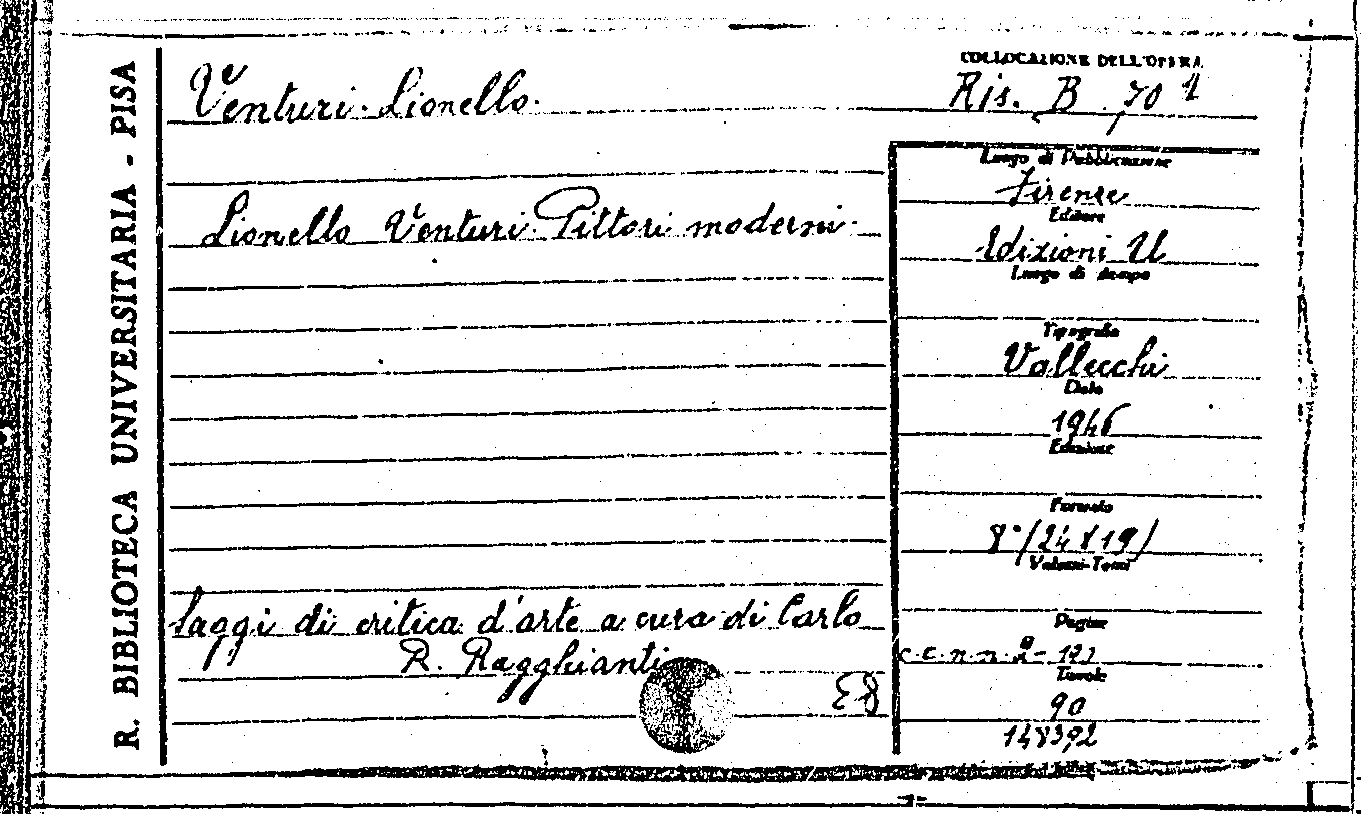 R. BIBLIOTECA UNIVERSITARIA - PISA
Venturi Lionello.
COLLOCAZIONE DELL'OPERA
Ris. B 70 1
Lionello Venturi. Pittori moderni.
Luogo di Pubblicazione
Firenze
Editore
Edizioni U
Luogo di stampa
Tipografia
Vallecchi
Data
1946
Edizione
Formato
8° (24 x 19)
Volumi-Tomi
Saggi di critica d'arte a cura di Carlo
R. Ragghianti
Pagine
c.c.n.n. 2 -
Tavole
90